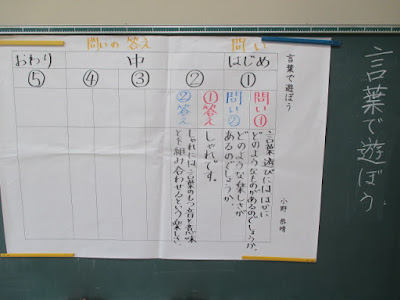 言葉で遊ぼう
言葉で遊ぼう
小野 恭靖
問い
問いの答え
はじめ
中
おわり
①
②
③
④
⑤
問い①
言葉遊びにはほかに
どのようなものがあるのでしょうか。
問い②
どのような楽しさが
あるのでしょうか。
①答え
しゃれです。
②答え
しゃれには、言葉のもつ音と意味
とを組み合わせるという楽しさ